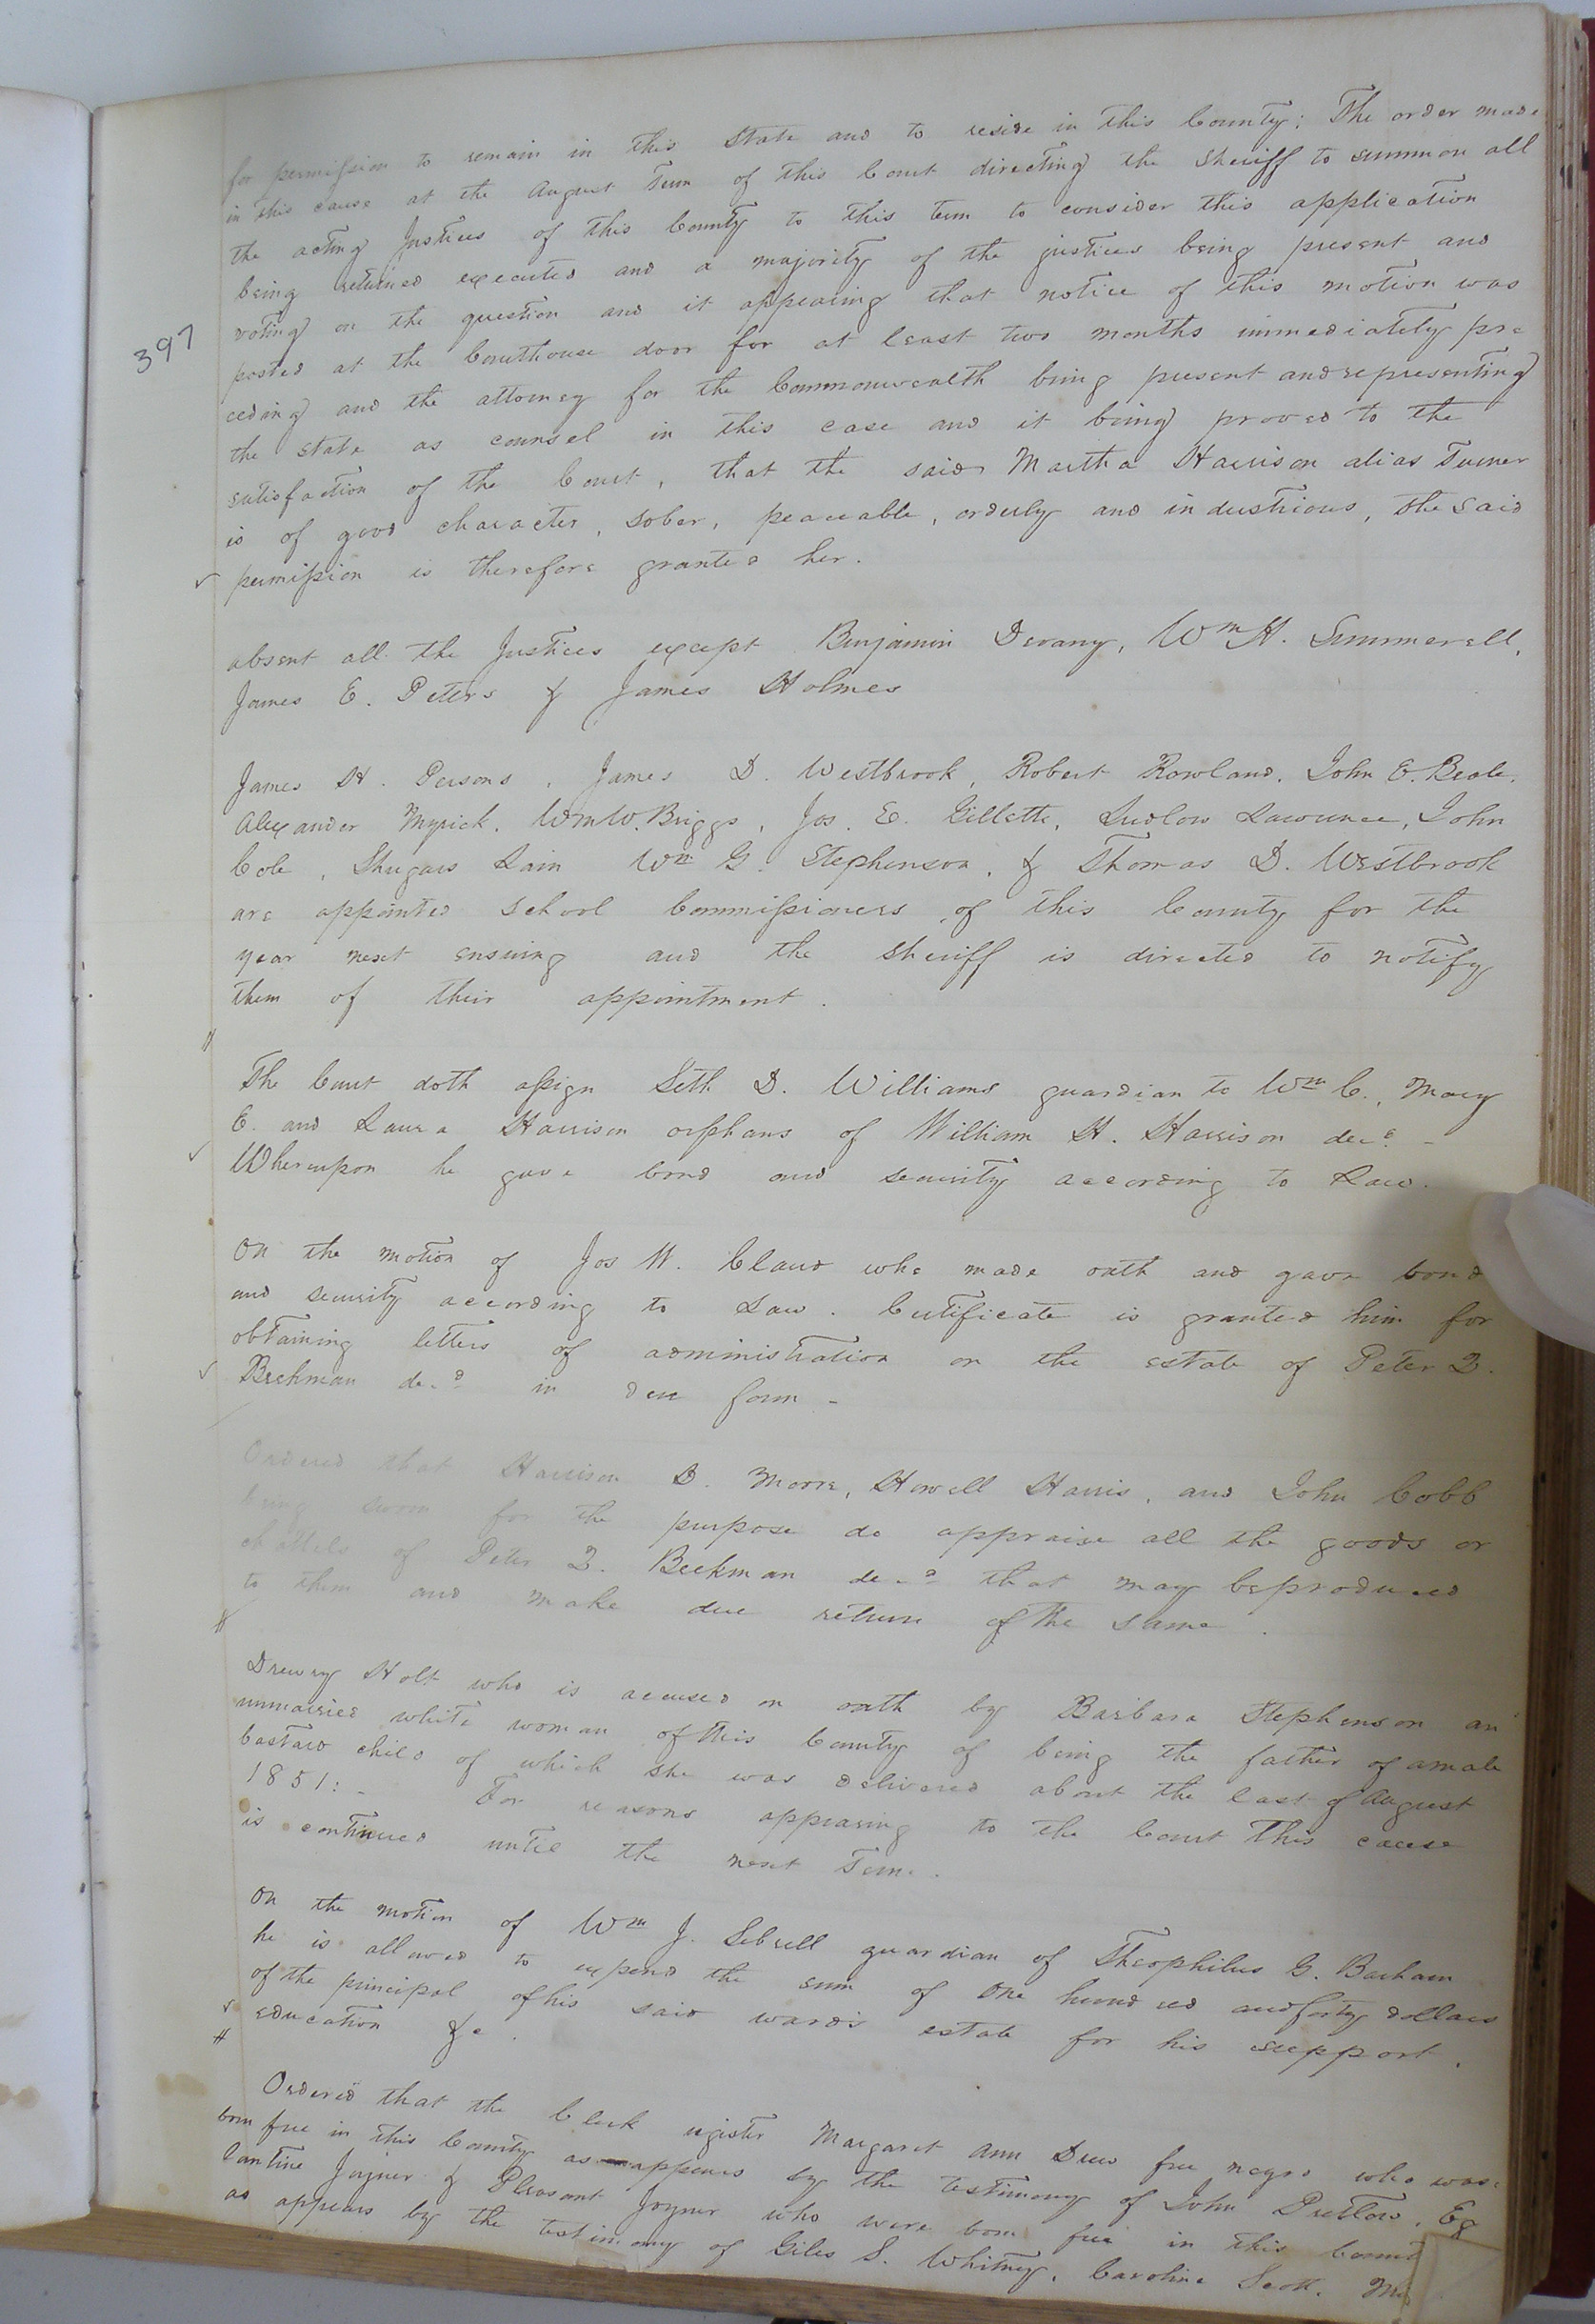 for permission to remain in this State and to reside in this County; The order made
in this cause at the August Term of this Court directing the Sheriff to summon all
the acting Justices of this County to this term to consider this application
being returned executed and a majority of the justices being present and
voting on the question and it appearing that notice of this motion was
posted at the Courthouse door for at least two months immediately pre
397
ceding and the attorney for the Commonwealth being present and representing
the state as counsel in this case and it being proved to the
satisfaction of the Court, that the said Martha Harrison alias Turner
is of good character, sober, peaceable, orderly and industrious, the said
permission is therefore granted her.
absent all the Justices except Benjamin Devany, Wm H. Summerell,
James E. Peters & James Holmes
James H. Persons, James D. Westbrook, Robert Rowland, John E. Beale,
Alexander Myrick, Wm W. Briggs, Jos. E. Gillette, Ludlow Lawrence, John
Cole, Shugars Lain Wm G. Stephenson, & Thomas D. Westbrook
are appointed School Commissioners of this County for the
year next ensuing and the Sheriff is directed to notify
them of their appointment.
The Court doth assign Seth D. Williams guardian to Wm C., Mary
E. and Laura Harrison orphans of William H. Harrison decd -
Whereupon he gave bond and security according to Law.
On the motion of Jos W. Claud who made oath and gave bond
and security according to Law. Certificate is granted him for
obtaining letters of administration on the estate of Peter
Beckman decd in due form -
Ordered that Harrison D. Moore, Howell Harris, and John Cobb
being sworn for the purpose do appraise all the goods or
chattels of Peter Beckman decd that may be produced
to them and make due return of the same.
Drewry Holt who is accused on oath by Barbara Stephenson an
unmarried white woman of this County of being the father of a male
bastard child of which she was delivered about the last of August
1851:- For reasons appearing to the Court This cause
is continued until the next Term.
On the motion of Wm J. Sebrell guardian of Theophilus G. Barham
he is allowed to expend the sum of One hundred and forty dollars
of the principal of his said ward's estate for his support,
education &c.
Ordered that the Clerk register Margaret Ann Drew free negro who was
born free in this County as appears by the testimony of John Pretlow, Eg
lantine Joyner & Pleasant Joyner who were born free in this County
as appears by the testimony of Giles S. Whitney, Caroline Scott,